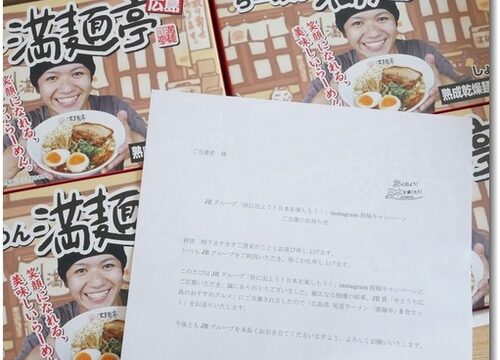 広島
満麺亭
笑顔になれる。
美味しいらーめん。
満麺亭
らーめん
満麺
しょ
熟成乾燥麺
笑顔になれる。
美味しいらーめん。
めん
満麺
熟
笑顔になれる。
美味しいらーめん。
ご当選者 様
旅に出よう！
日本を楽しもう！
JRグループ「旅に出よう！日本を楽しもう！」instagram 投稿キャンペーン
ご当選のお知らせ
拝啓 時下ますますご清栄のこととお喜び申し上げます。
いつもJRグループをご利用いただき、厚くお礼申し上げます。
このたびはJRグループ「旅に出よう！日本を楽しもう！」instagram 投稿キャンペーンに
ご応募いただき、誠にありがとうございました。厳正なる抽選の結果、JR賞「せとうち広
島のおすすめグルメ」にご当選されましたので「広島県 尾道ラーメン「満麺亭」8食セッ
ト」をお送りいたします。
今後ともJRグループを末長くお引き立てくださいますよう、よろしくお願いいたします。